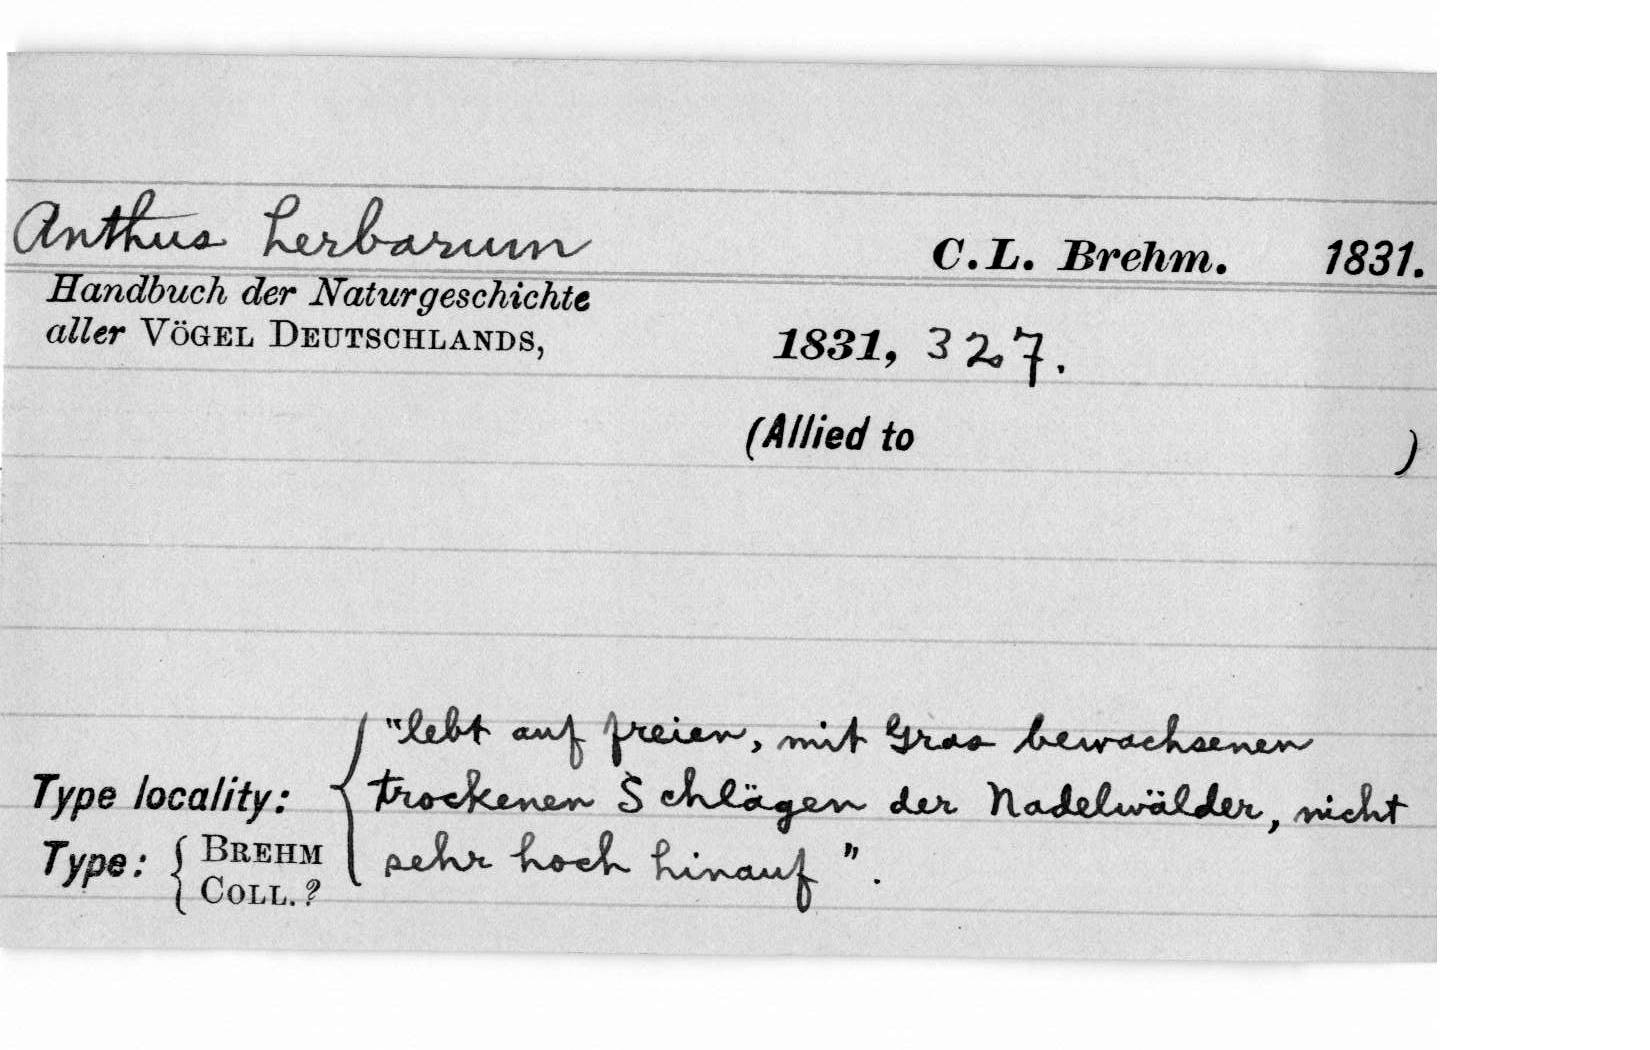 Anthus herbarum C.L. Brehm. 1831.
Handbuch der Naturgeschichte
aller VÖGEL DEUTSCHLANDS, 1831, 327.
(Allied to )
"lebt auf freien, mit Gras bewachsenen
Type locality: trockenen Schlägen der Nadelwälder, nicht
Type: BREHM COLL. ? sehr hoch hinauf".